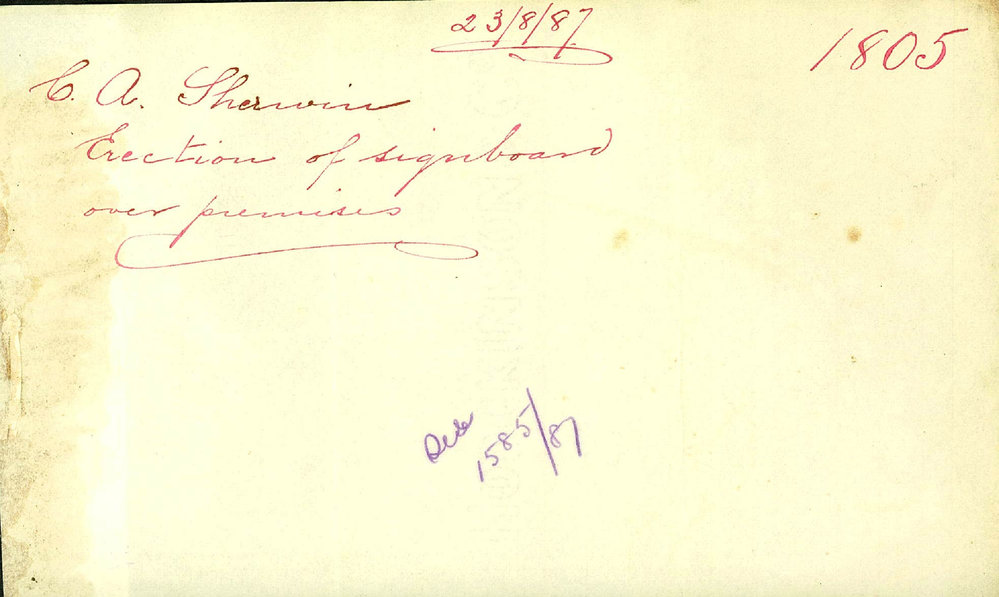 23/8/87
1805
C. A. Sherwin
Erection of signboard
over premises
1585/87